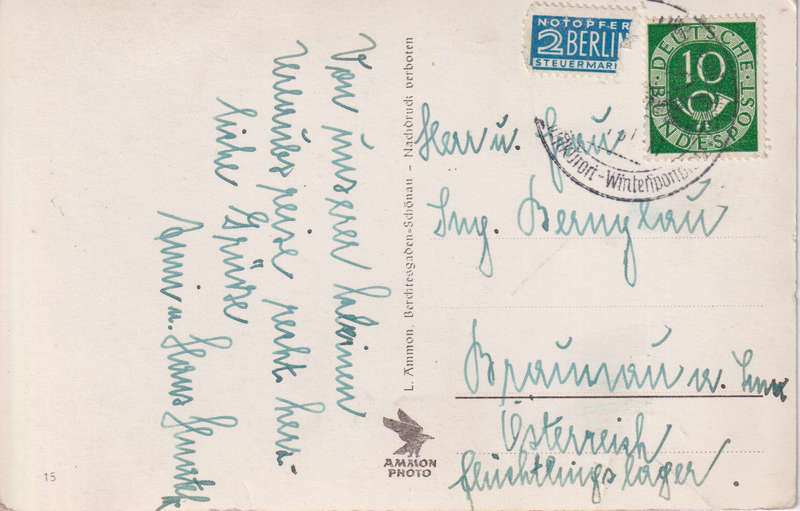 Von unserer kleinen
Urlaubsreise recht herz-
liche Grüsse
Anni u. Hans
L. Ammon, Berchtesgaden-Schönau - Nachdruck verboten
AMMON
PHOTO
15
NOTOPFER
2 BERLIN
STEUERMARKE
DEUTSCHE
10
BUNDESPOST
Kurort-Wintersport
Herr u. Frau
Ing.
Braunau a. Inn
Österreich
Flüchtlingslager.